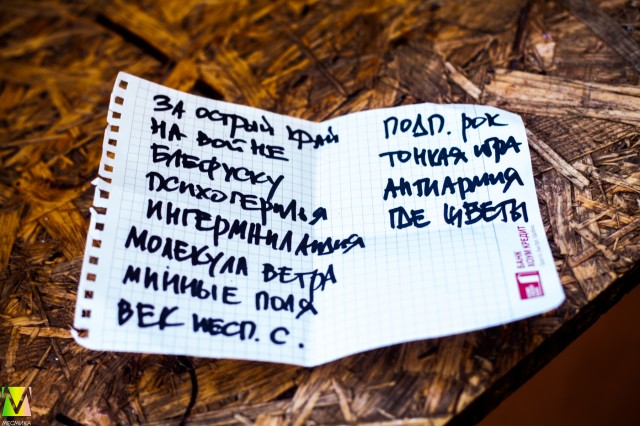 ЗА ОСТРЫЙ КРАЙ
НА ВОЙНЕ
БЛЕФУСКУ
ПСИХОГЕРИЛЬЯ
ИНГЕРМАНЛАНДИЯ
МОЛЕКУЛА ВЕТРА
МИННЫЕ ПОЛЯ
ВЕК НЕСП. С.
ПОДП. РОК
ТОНКАЯ ИГРА
АНТИАРМИЯ
ГДЕ ЦВЕТЫ
БАНК
ХОУМ КРЕДИТ
МЕСМИКА